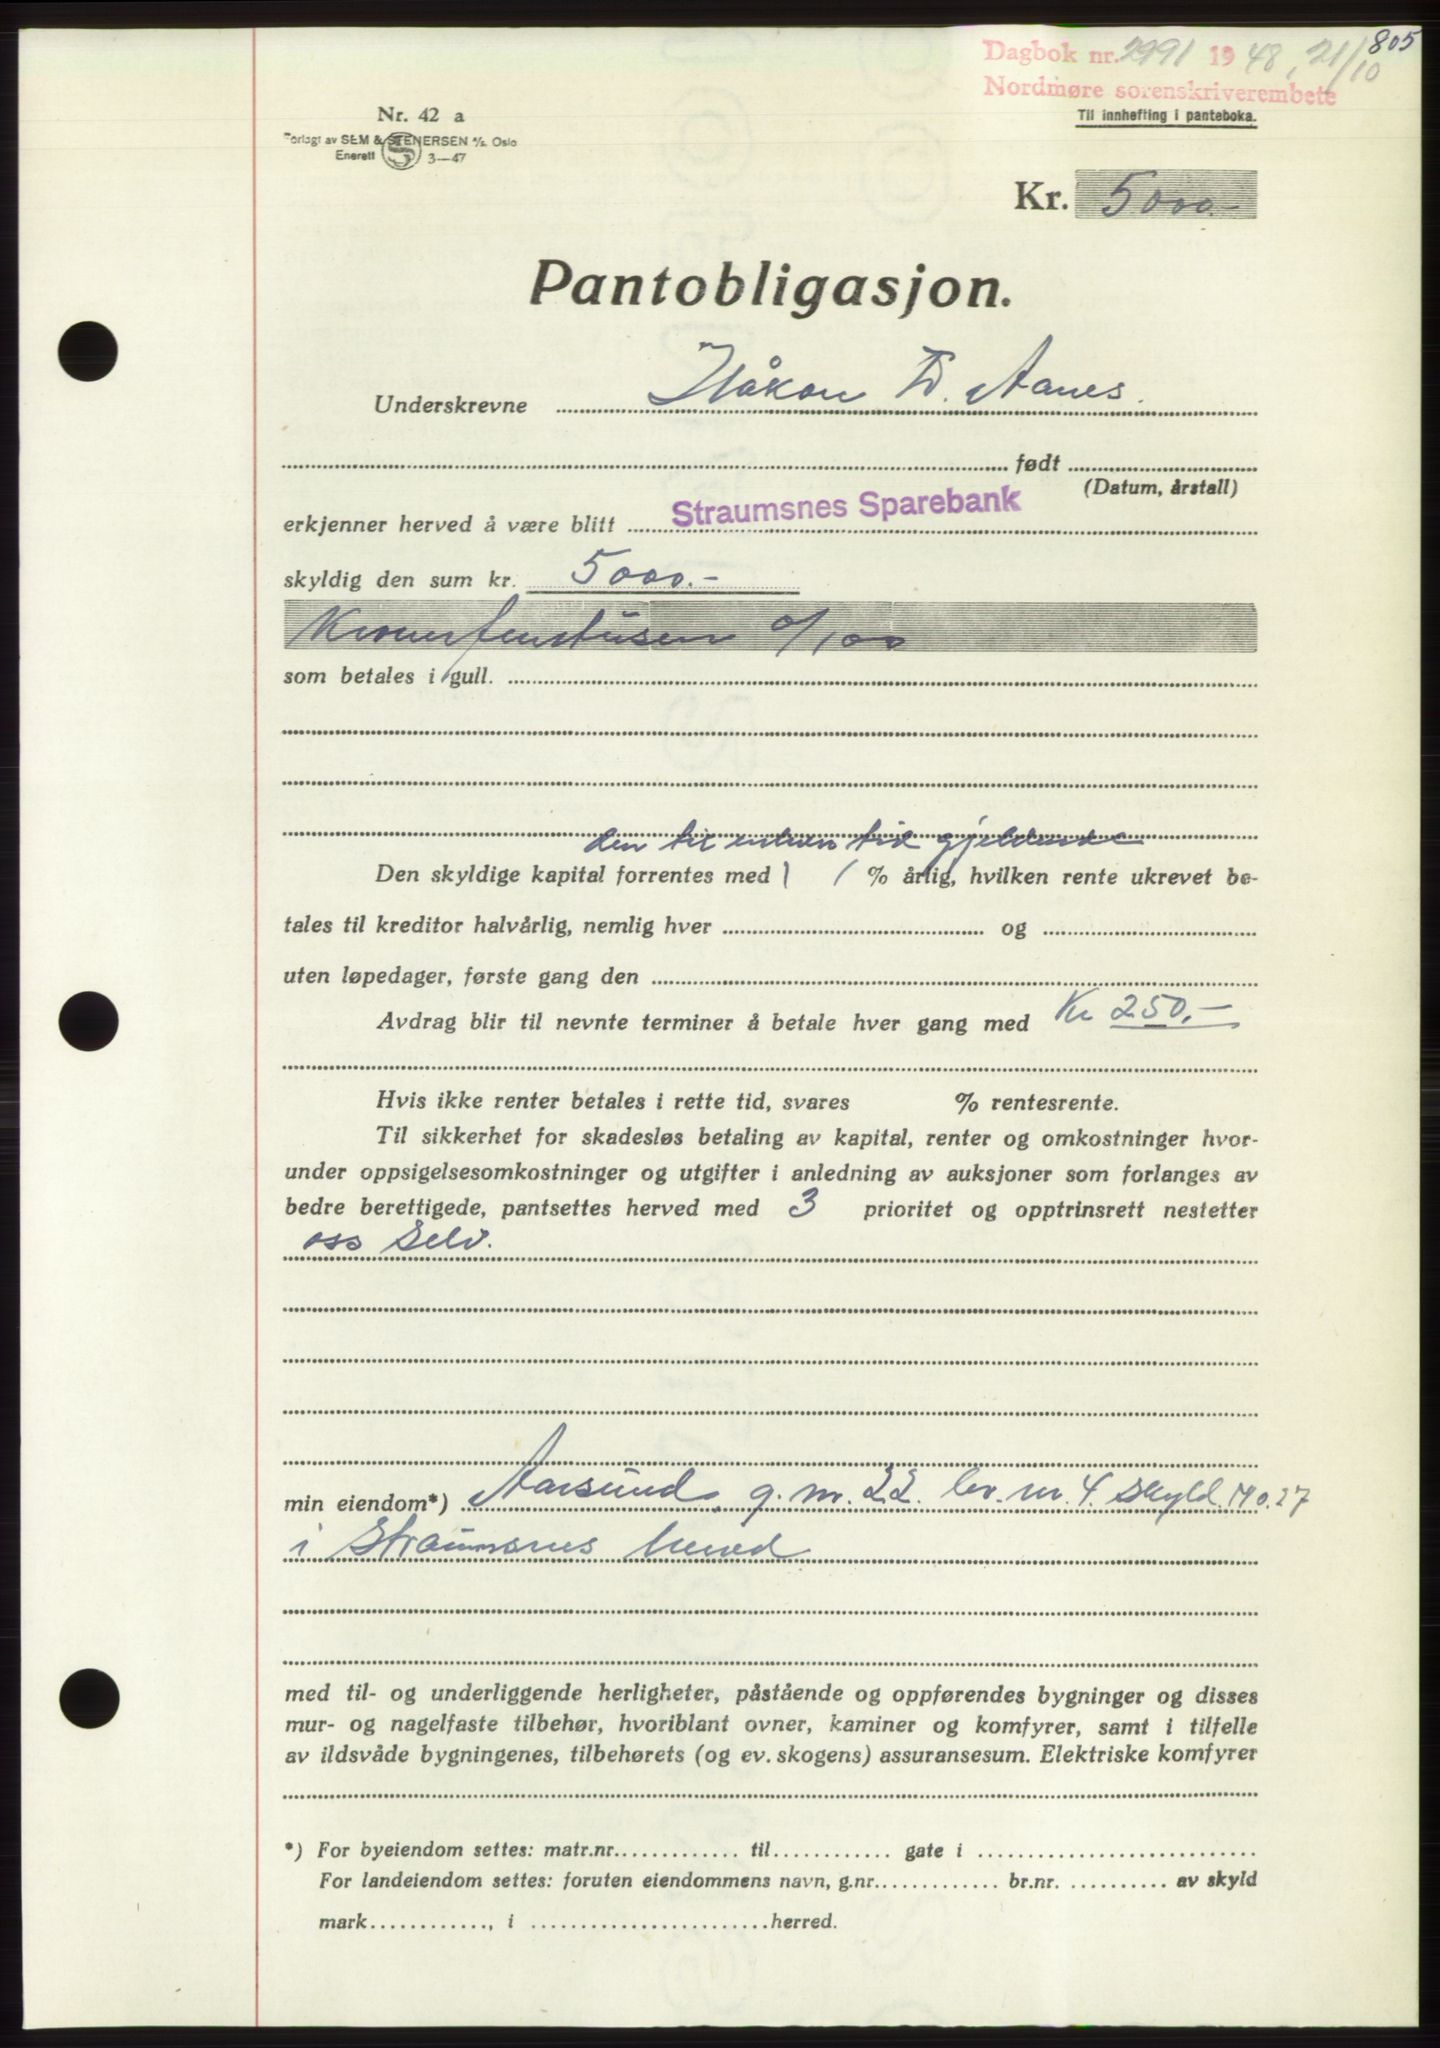 805
Dagbok nr. 2991 1948, 21/10
Nordmøre sorenskriverembete
Til innhefting i panteboka.
Nr. 42 a
Forlagt av SEM & STENERSEN A/S, Oslo
Enerett 3—47
Kr. 5000.-
Pantobligasjon.
Underskrevne Håkon Aanes.
født
(Datum, årstall)
erkjenner herved å være blitt Straumsnes Sparebank
skyldig den sum kr. 5000.-
Kronerfemtusen 0/100
som betales i gull.
den til enhver tid gjeldende
Den skyldige kapital forrentes med % årlig, hvilken rente ukrevet be-
tales til kreditor halvårlig, nemlig hver og
uten løpedager, første gang den
Avdrag blir til nevnte terminer å betale hver gang med Kr 250.-
Hvis ikke renter betales i rette tid, svares % rentesrente.
Til sikkerhet for skadesløs betaling av kapital, renter og omkostninger hvor-
under oppsigelsesomkostninger og utgifter i anledning av auksjoner som forlanges av
bedre berettigede, pantsettes herved med 3 prioritet og opptrinsrett nestetter
oss Selv.
min eiendom*) Aarsund, g. nr. 22. br. nr. 4. Skyld. M 0.27
i Straumsnes herred
med til- og underliggende herligheter, påstående og oppførendes bygninger og disses
mur- og nagelfaste tilbehør, hvoriblant ovner, kaminer og komfyrer, samt i tilfelle
av ildsvåde bygningenes, tilbehørets (og ev. skogens) assuransesum. Elektriske komfyrer
*) For byeiendom settes: matr.nr. til gate i
For landeiendom settes: foruten eiendommens navn, g.nr. br.nr. av skyld
mark , i herred.